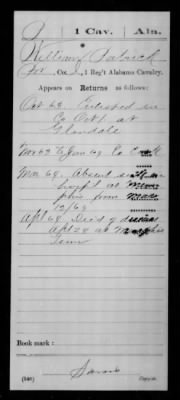 P | 1 Cav. | Ala.
William Patrick
Pvt., Co. , 1 Reg't Alabama Cavalry.
Appears on Returns as follows:
Oct 63. Enlisted in
Co Oct 1 at
Glendale
Nov 63 to Jan 64
Mar 64. Absent sick in
hosp't at Mem
phis from
12/63
Apl 64. Died of
Apl 28 at Memphis
Tenn
Book mark:
(546)
Copyist.